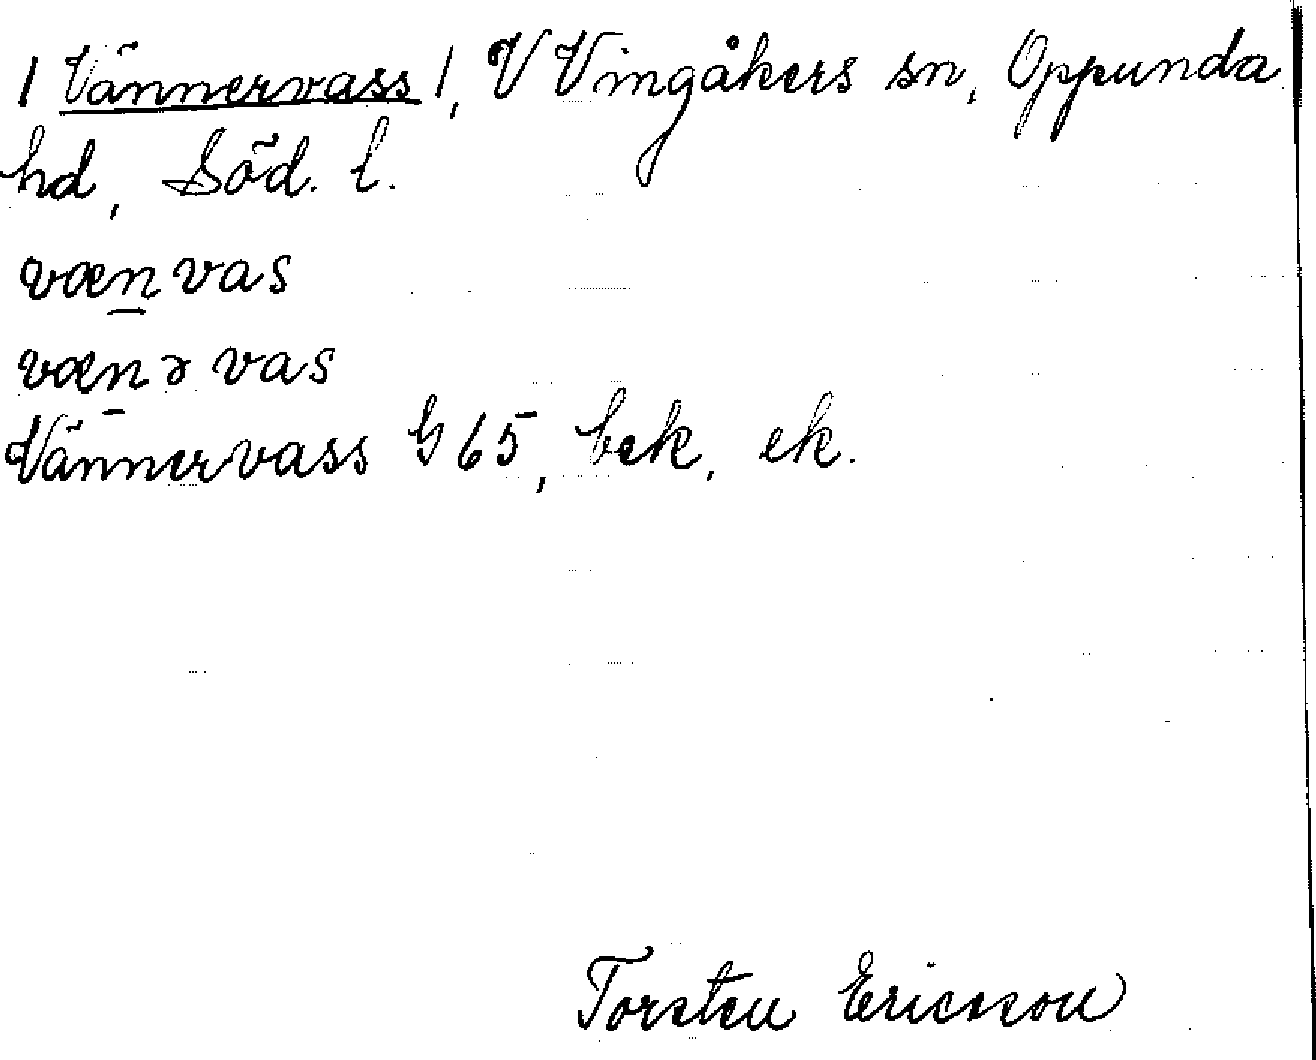 / Vännervass /, V Vingåkers sn, Oppunda
hd, Söd. l.
væn̲vas
væn̲ə vas
Vännervass G 65, bek, ek.
Torsten Ericsson